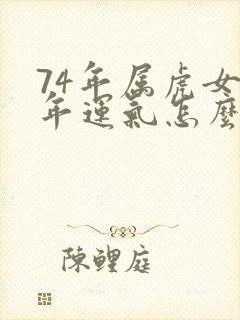 74年属虎女
年運氣怎麼
陳鯉庭